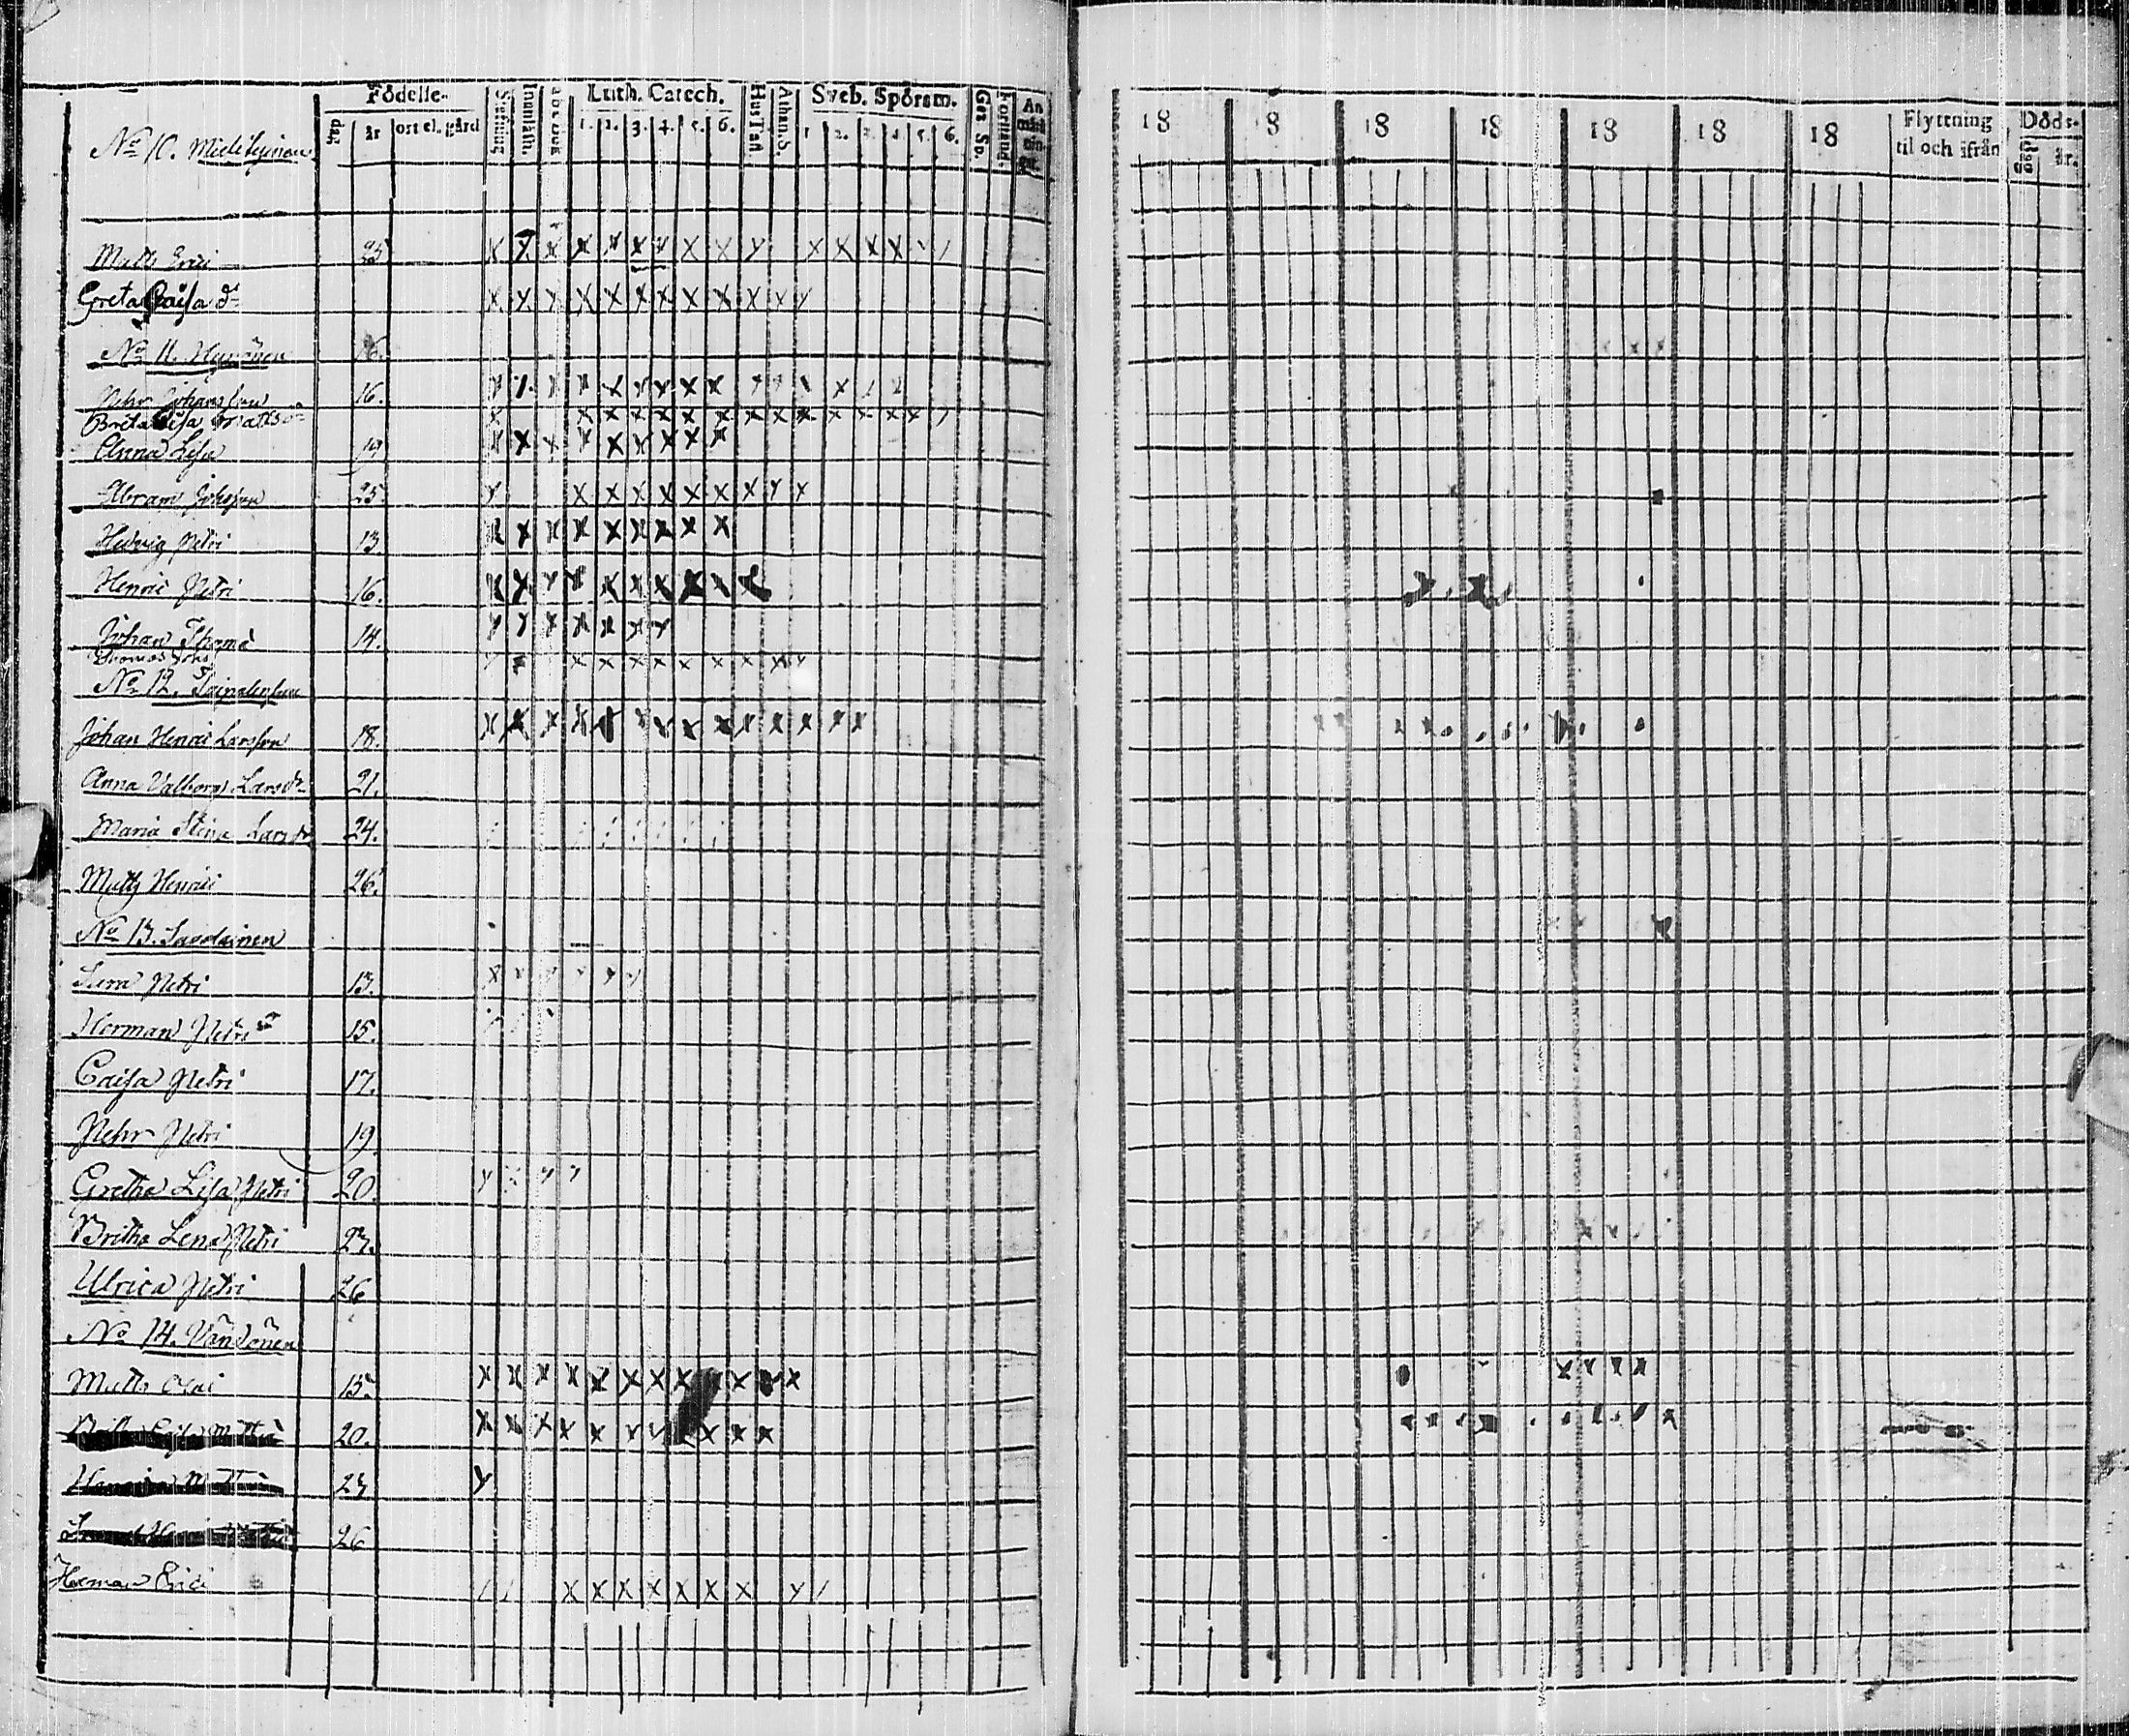 Födelse-
dag
år
ort el. gård
Stafning
Innanläsn.
abc Bok
Luth. Catech.
1. 2. 3. 4. 5. 6.
Hus Tafl.
Athan. S.
Sveb. Spörsm.
1 2. 3. 4. 5. 6.
Gez. Sp.
Förstånd.
An
18 18 18 18 18 18 18
Flyttning
til och ifrån
Döds-
dag
år.
No 10.
Matts Erici 25
Greta Caisa dr
No 11. 16.
Pehr Johansson 16.
Brita Lisa Mattsdr
Anna Lisa 19
Abram Johsson 25
Hedvig Petri 13.
Henric Petri 16.
Johan Thomæ 14.
Thomas Johs
No 12.
Johan Henric Larsson 18.
Anna Valborg Larsdr 21.
Maria Stina Larsdr 24.
Matts Henrici 26.
No 13. Savolainen
Petri 13.
Herman Petri 15.
Caisa Petri 17.
Pehr Petri 19
Gretha Lisa Petri 20
Britha Lena Petri 23.
Ulrica Petri 26
No 14.
Matts Olai 15.
20.
23
26
Herman Erici